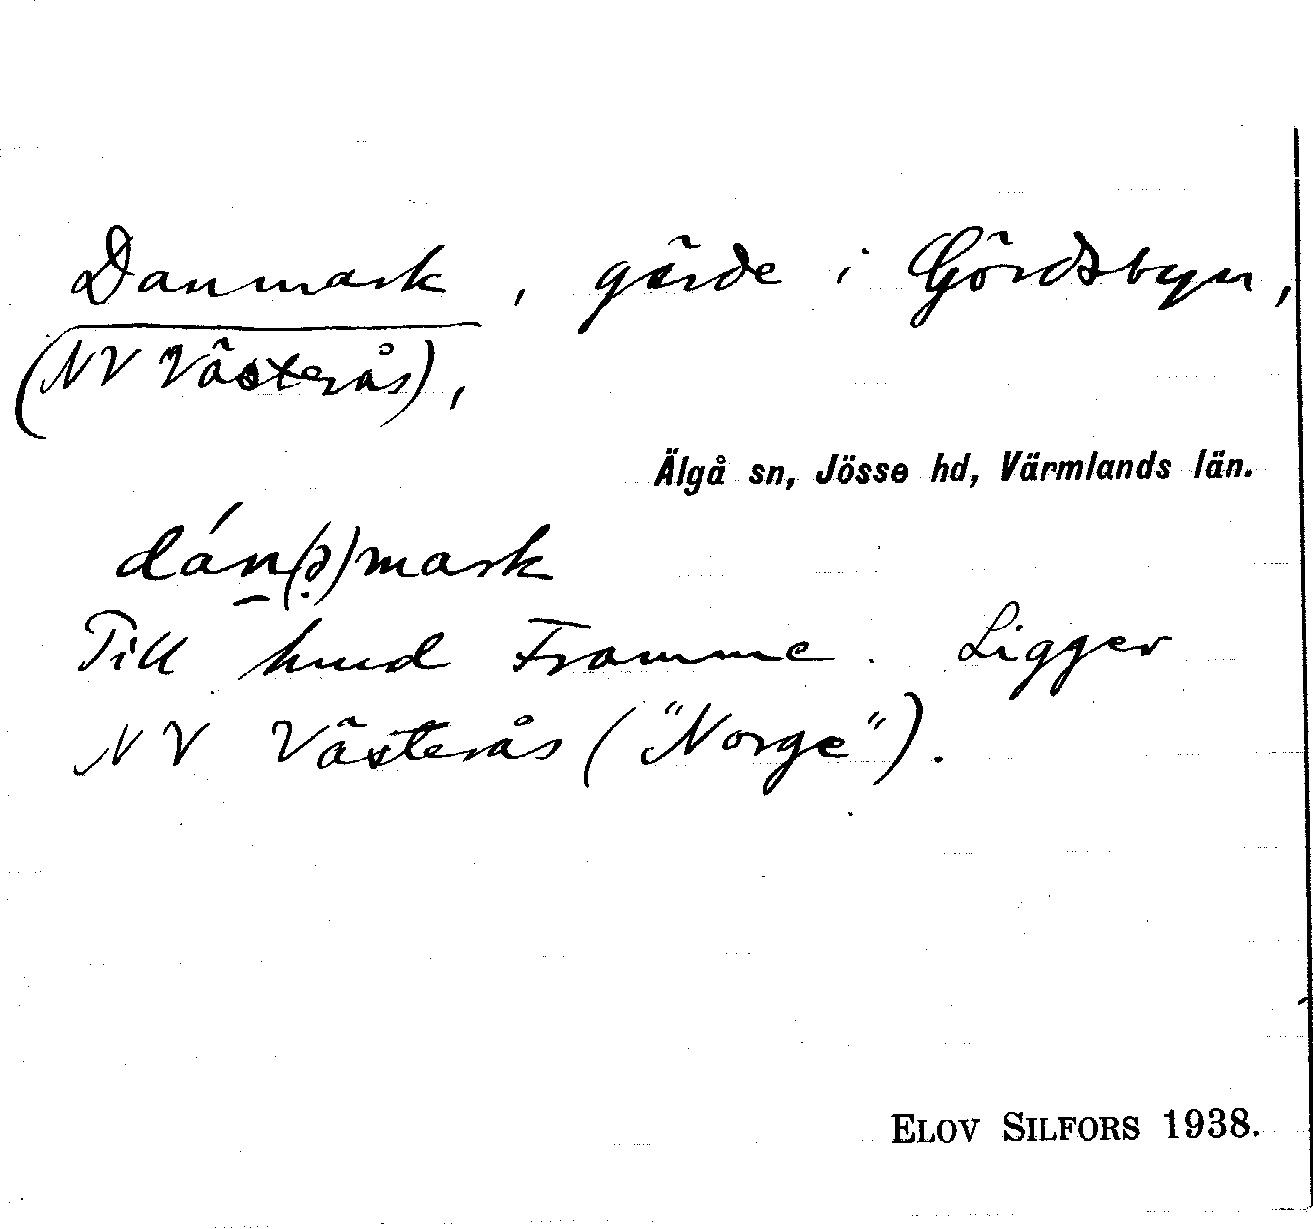 Danmark, gärde i Gördsbyn,
(NV Västerås),
Älgå sn, Jösse hd, Värmlands län.
dán(ə)mark
Till hmd Framme. Ligger
NV Västerås ("Norge").
ELOV SILFORS 1938.